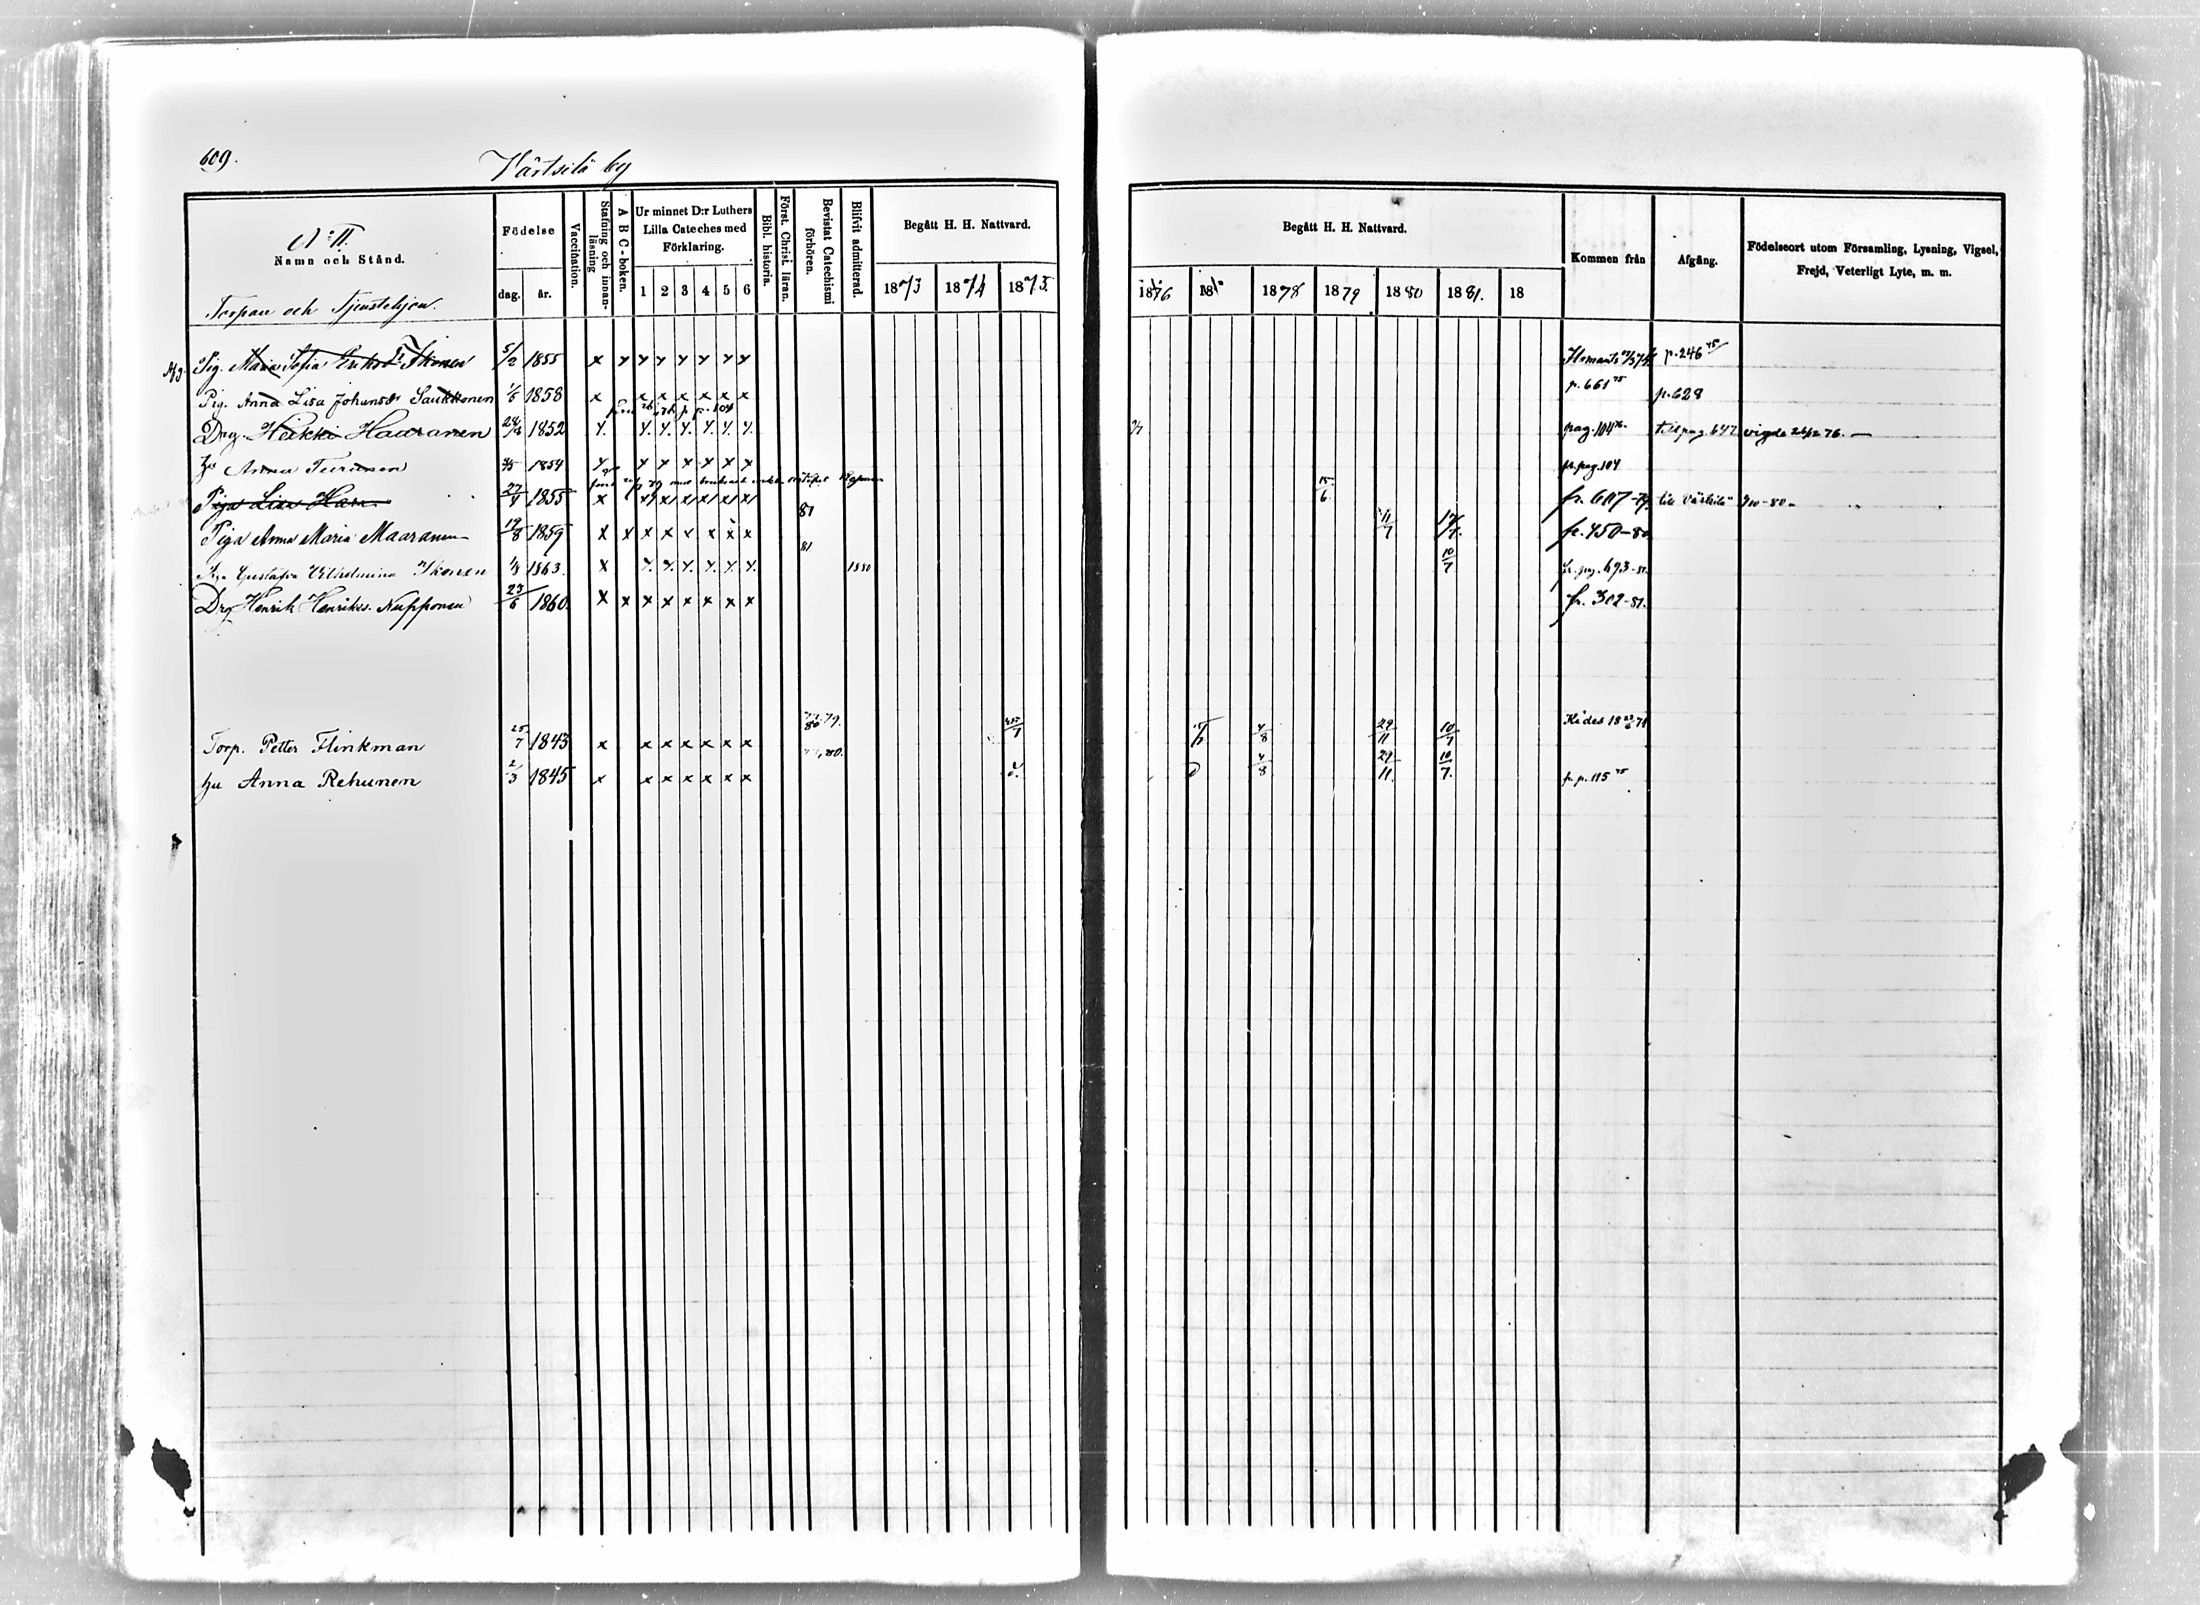 609.
Värtsilä by
No II.
Namn och Stånd.
Torpare och Tjenstehjon.
Födelse
dag.
år.
Vaccination.
Stafning och innan-läsning
ABC-boken.
Ur minnet D:r Luthers
Lilla Cateches med
Förklaring.
1 2 3 4 5 6
Bibl. historia.
Först. Christ. läran.
Bevistat Catechismi förhören.
Blifvit admitterad.
Begått H. H. Nattvard.
1873 1874 1875
Begått H. H. Nattvard.
1876 18 1878 1879 1880 1881. 18
Kommen från
Afgång.
Födelseort utom Församling, Lysning, Vigsel,
Frejd, Veterligt Lyte, m. m.
Pig. Maria Sofia Eriksdr Ikonen 5/2 1855 x x x x x x x x p. 246 75
Pig. Anna Lisa Johansdr Saukkonen 1/5 1858 x x x x x x x p. 661 75 p. 628
Drg. Heikki Haaranen 1852 x. x. x. x. x. x. x. pag. 104 76 till pag. 647 vigde 26/12 76. —
hu Anna Teirinen 1854 x x x x x x x fr. pag. 104
Piga Lisa 27/4 1855 x x x x x x x 15/6 fr. 607-79. till Värtsilä
Piga Anna Maria Maaranen 19/8 1859 x x x x x x x x 81 11/7 17/7. fr. 450-80
Pga Gustafva Vilhelmina Ikonen 1863. x x. x. x. x. x. x. 81 1880 10/7 fr. pag. 693-81.
Drg Henrik Henriks. Nupponen 23/6 1860. x x x x x x x x fr. 302-81.
Torp. Petter Flinkman 25/7 1843 x x x x x x x 79. 80 4/8 29/11 10/7 Kides
hu Anna Rehunen 2/3 1845 x x x x x x x 80. 4/8 29/11. 10/7. fr. p. 115 75